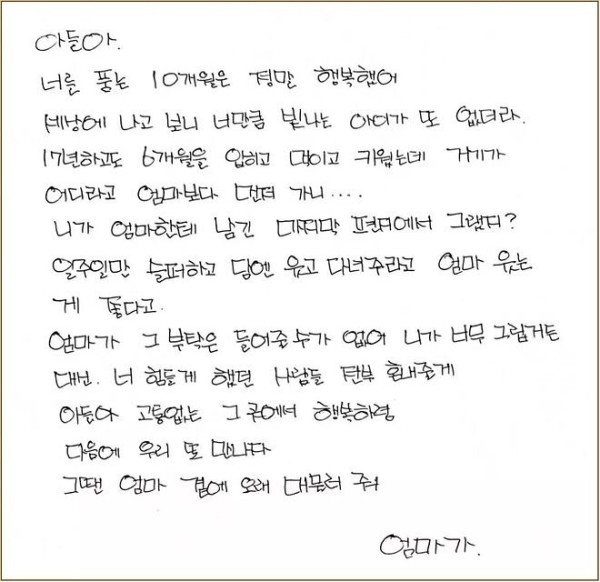 아들아.
너를 품는 10개월은 정말 행복했어
세상에 나고 보니 너만큼 빛나는 아이가 또 없더라.
17년하고도 6개월을 입히고 먹이고 키웠는데 거기가
어디라고 엄마보다 먼저 가니....
니가 엄마한테 남긴 마지막 편지에서 그랬지?
일주일만 슬퍼하고 담엔 웃고 다녀주라고 엄마 웃는
게 좋다고.
엄마가 그 부탁은 들어줄수가 없어 니가 너무 그립거든
대신. 너 힘들게 했던 사람들 전부 혼내줄게
아들아 고통없는 그 곳에서 행복하렴
다음에 우리 또 만나자
그땐 엄마 곁에 오래 머물러 줘
엄마가.